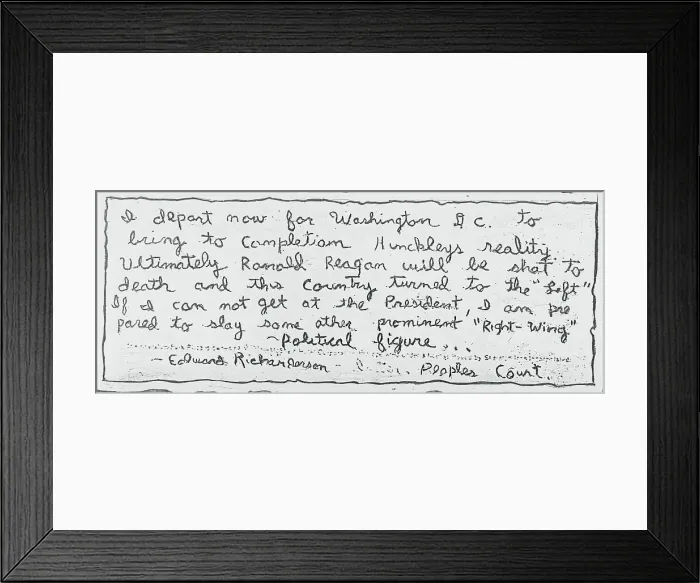 I depart now for Washington D.C. to
bring to completion Hinckleys reality.
Ultimately Ronald Reagan will be shot to
death and this country turned to the "Left"
If I can not get at the President, I am pre
pared to slay some other prominent "Right-Wing"
~political figure...
~ Edward Richardson - Peoples Court.